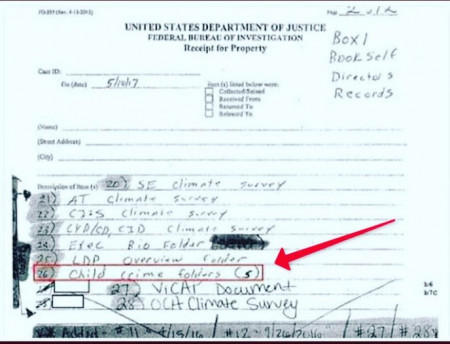 FD-597 (Rev. 4-13-2015)
Page 2 of 2
UNITED STATES DEPARTMENT OF JUSTICE
FEDERAL BUREAU OF INVESTIGATION
Receipt for Property
Box 1
Book Self
Director's
Records
Case ID:
On (date) 5/10/17
item (s) listed below were:
Collected/Seized
Received From
Returned To
Released To
(Name)
(Street Address)
(City)
Description of Item (s): 20) SE Climate Survey
21) AT Climate Survey
22) CJIS Climate Survey
23) CYD/CD, CID Climate Survey
24) Exec Bio Folder
25) LDP Overview Folder
26) Child Crime folders (5)
27) ViCAP Document
28) OCH Climate Survey
b6
b7C
Added - #11 - 4/15/16 #12 - 7/26/2016 #27 #28